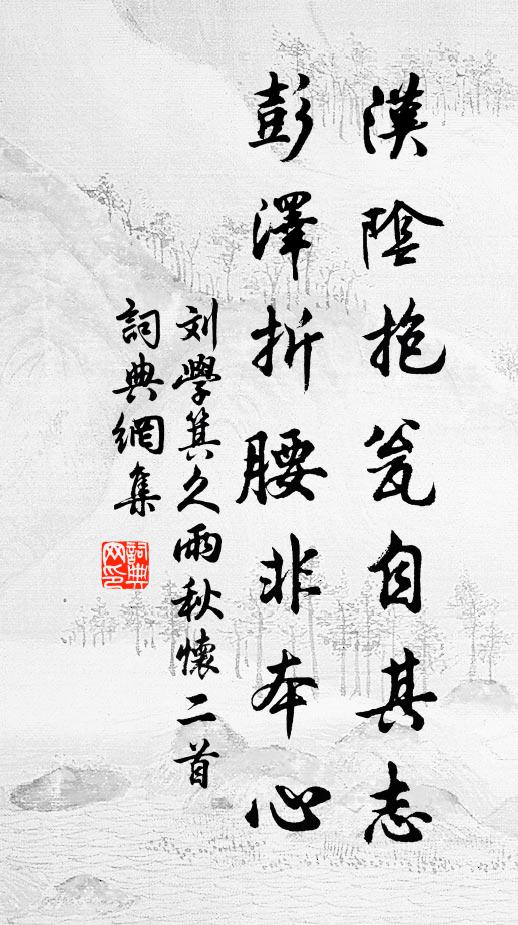 漢陰抱瓮自其志
彭澤折腰非本心
刘學箕久雨秋懷二首
詞典網集
詞典
网印